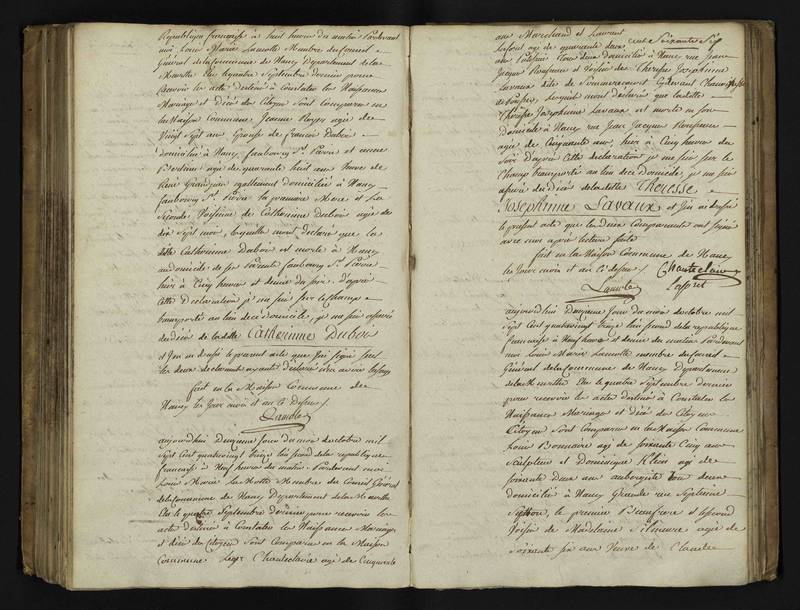 République française à huit heures du matin Pardevant
moi Louis Marie Lamotte Membre du Conseil
Général de la Commune de Nancy Département de la
Meurthe Elu le quatre Septembre dernier pour
recevoir les actes destinés à constater les Naissances
Mariage et Décès des Citoyens Sont comparus en
la Maison Commune Jeanne agée de
Vingt Sept ans Epouse de francois Dubois
domiciliée à Nancy faubourg St. Pierre et anne
agée de quarante huit ans Veuve de
René également domiciliée à Nancy
faubourg St. Pierre la première Mere et La
Seconde Voisine de Catherinne Dubois agée de
dix Sept mois, lesquelles m'ont déclaré que la
dite Catherinne Dubois est morte à Nancy
au domicile de ses Parents faubourg St. Pierre
hier à Cinq heures et demie du soir, d'après
cette Déclaration je me suis sur le champ
transporté au lieu de ce domicile, je me suis assuré
du décès de ladite Catherinne Dubois
et j'en ai dressé le present acte que j'ai signé seul
les deux declarantes ayantes déclarées
fait en la Maison Commune de
Nancy les Jour mois et an ci Dessus /.
Lamotte
aujourd'hui Deuxieme Jour du mois d'octobre mil
Sept Cent quatrevingt treize l'an second de la republique
francaise à Neuf heures du matin Pardevant moi
Louis Marie La Motte Membre du Conseil Général
de la Commune de Nancy Département de la Meurthe
Elu le quatre Septembre dernier pour recevoir les
actes destinés à Constater les Naissances Mariages
et décès des Citoyens Sont Comparus en la Maison
Commune Chanteclaire agé de Cinquante
ans Marchand et Laurent
cent Soixante Six
Laspret agé de quarante deux
ans Patissier tous deux domiciliés à Nancy rue Jean
Jacque Rousseau et Voisins de Theresse Josephinne
Lavaux
lesquels m'ont déclaré que ladite
Theresse Josephinne Lavaux est morte en son
domicile à Nancy rue Jean Jacque Rousseau
agée de Cinquante ans, hier à Cinq heures du
Soir d'après cette declaration je me suis sur le
Champ transporté au lieu de ce domicile, je me suis
assuré du Décès de ladite Theresse
Josephinne Lavaux et j'en ai dressé
le present acte que les deux Comparants ont signé
avec moi après lecture faite
fait en la Maison Commune de Nancy
les Jour mois et an ci dessus /. Chanteclaire
Lamotte Laspret
aujourd'hui Deuxieme Jour du mois d'octobre mil
Sept Cent quatrevingt treize l'an second de la republique
francaise à Neuf heures et demie du matin Pardevant
moi Louis Marie Lamotte membre du Conseil
Général de la Commune de Nancy Département
de la Meurthe Elu le quatre Septembre dernier
pour recevoir les actes destinés à Constater les
Naissances Mariages et décès des Citoyens
Citoyens Sont Comparus en la Maison Commune
Louis Bonnaire agé de soixante Cinq ans
Sculpteur et Dominique Klein agé de
soixante Deux ans aubergiste tous deux
domiciliés à Nancy Grande rue
le premier Beaufrere et le second
Voisin de Madelaine agée de
Soixante six ans Veuve de Claude